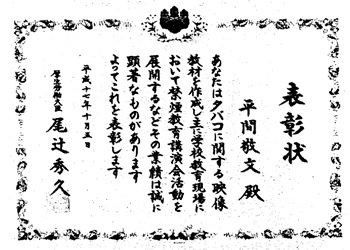 表彰状
平間敬文殿
あなたはタバコに関する映像
教材を作成し主に学校教育現場に
おいて禁煙教育講演会活動を
展開するなどその業績は誠に
顕著なものがあります
よってこれを表彰します
平成十七年十月五日
厚生労働大臣
尾辻秀久